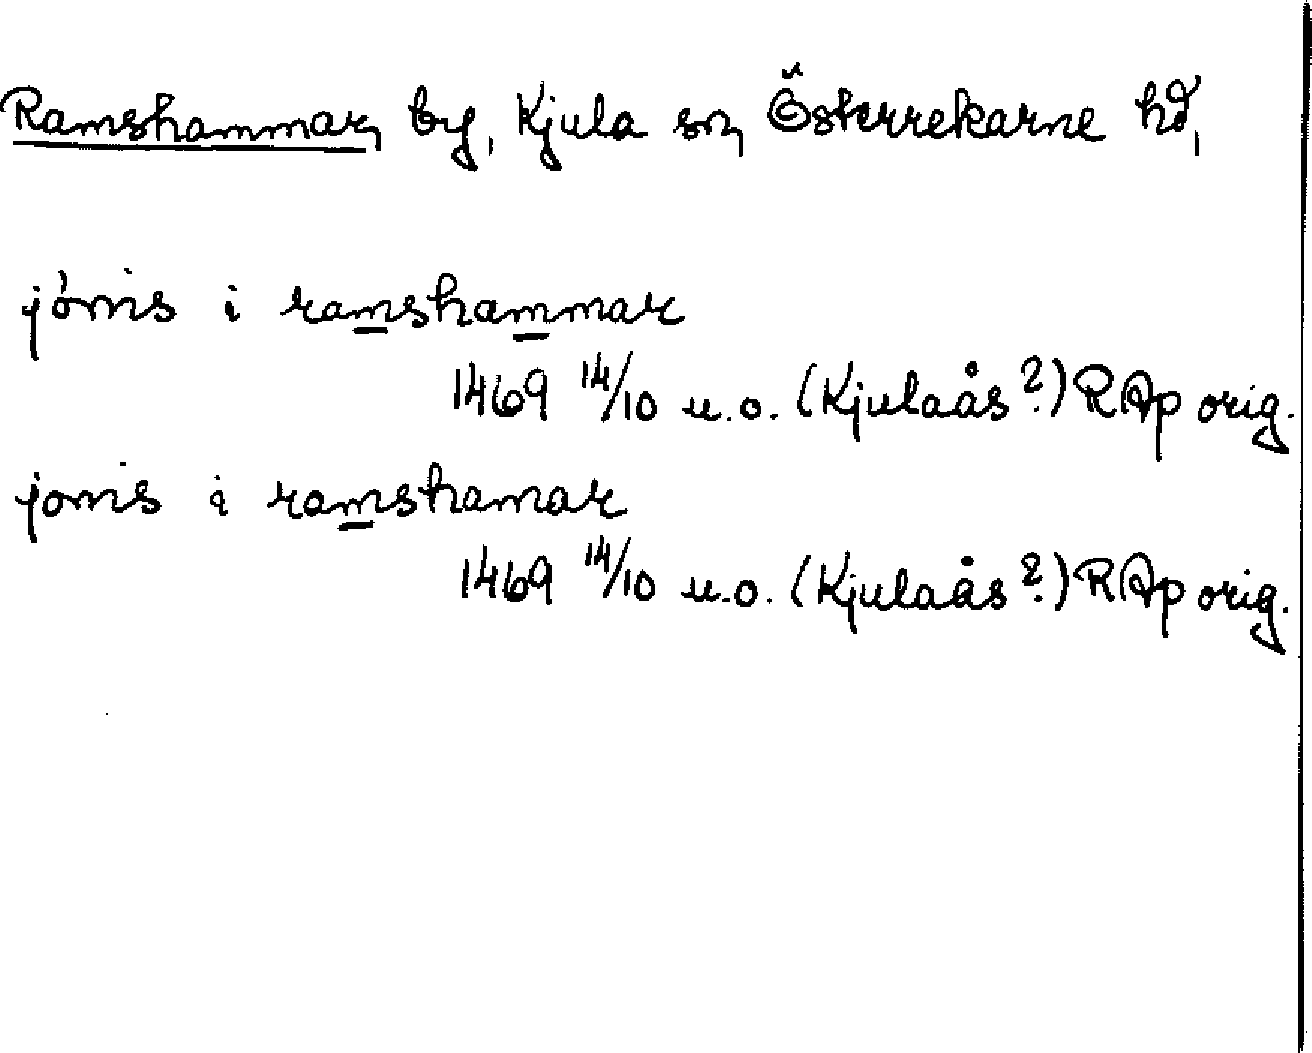 Ramshammar, by, Kjula sn, Österrekarne hd,
jónis i ramshammar
1469 14/10 u.o. (Kjulaås?) RAp orig.
jonis i ramshamar
1469 14/10 u.o. (Kjulaås?) RAp orig.